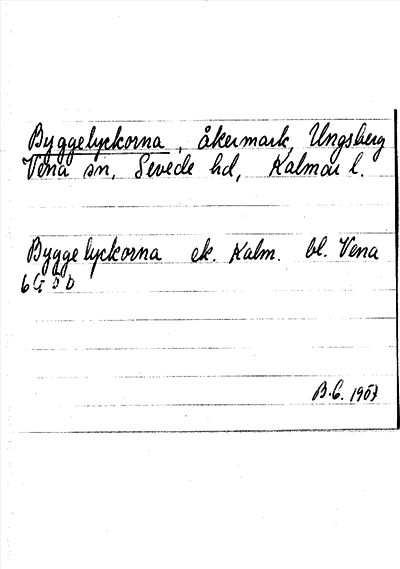 Byggelyckorna, åkermark, Ungsberg
Vena sn, Sevede hd, Kalmar l.
Byggelyckorna ek. Kalm. bl. Vena
6G 5b
B.C. 1957